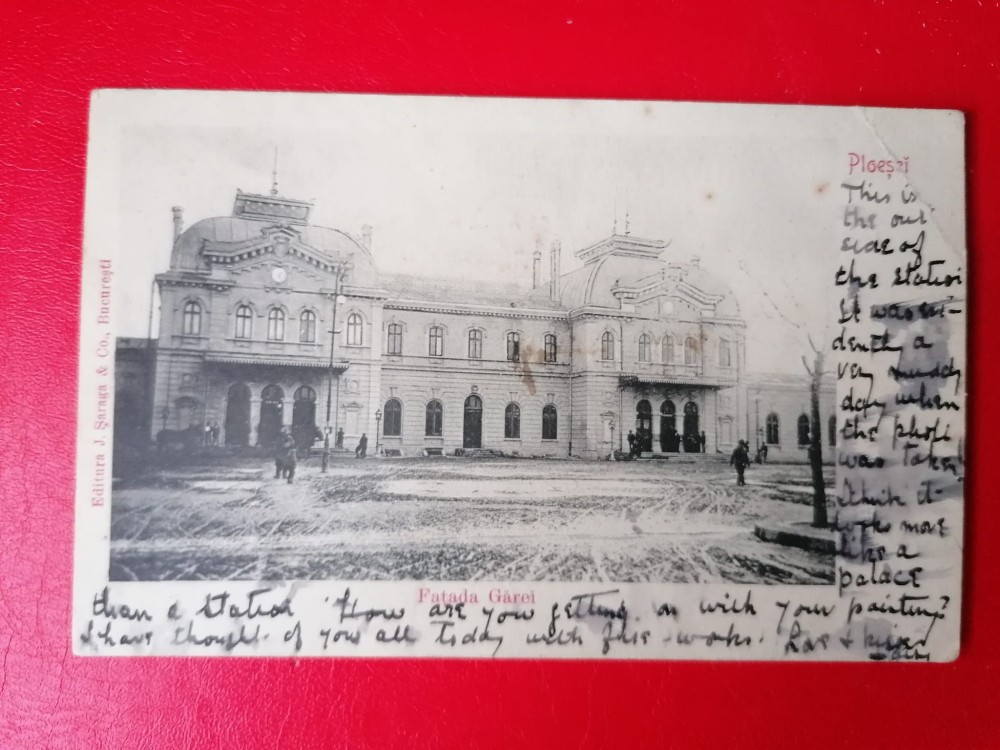 Ploești
This is
the out
side of
the station
It was evi-
dently a
very muddy
day when
the photo
was taken
I think it
looks more
like a
palace
Editura J. Șaraga & Co., București
Fațada Gărei
than a station How are you getting on with your painting?
I have thought of you all today with fire-works. Love & kisses